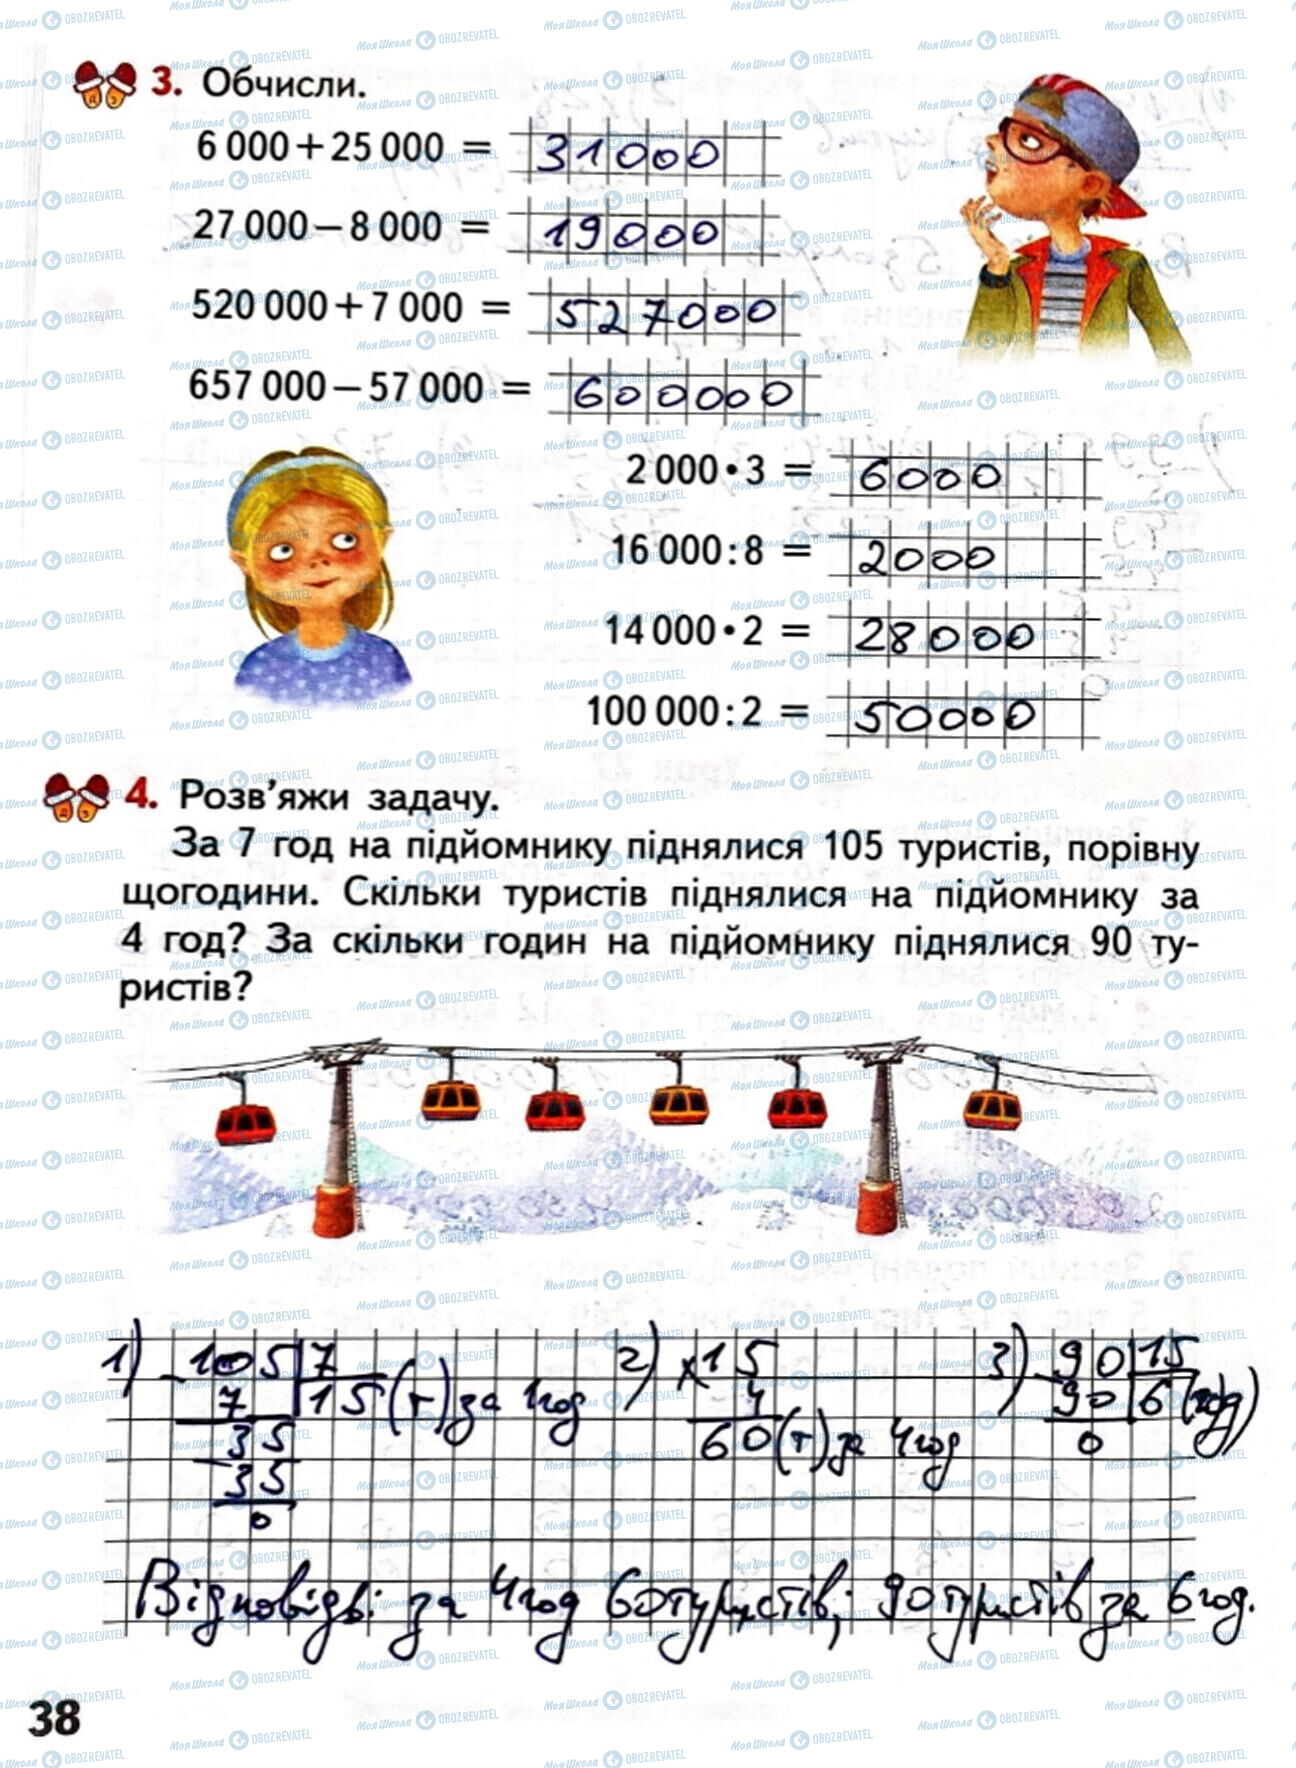 3. Обчисли.
6 000 + 25 000 = 31000
27 000 – 8 000 = 19000
520 000 + 7 000 = 527000
657 000 – 57 000 = 600000
2 000 • 3 = 6000
16 000 : 8 = 2000
14 000 • 2 = 28000
100 000 : 2 = 50000
4. Розв’яжи задачу.
За 7 год на підйомнику піднялися 105 туристів, порівну
щогодини. Скільки туристів піднялися на підйомнику за
4 год? За скільки годин на підйомнику піднялися 90 ту-
ристів?
1) 105 | 7 2) × 15 3) 90 | 15
7 | 15 (т) за 1 год 4 90 | 6 (год)
35 60 (т) за 4 год 0
35
0
Відповідь: за 4 год 60 туристів; 90 туристів за 6 год.
38
МояШкола OBOZREVATEL